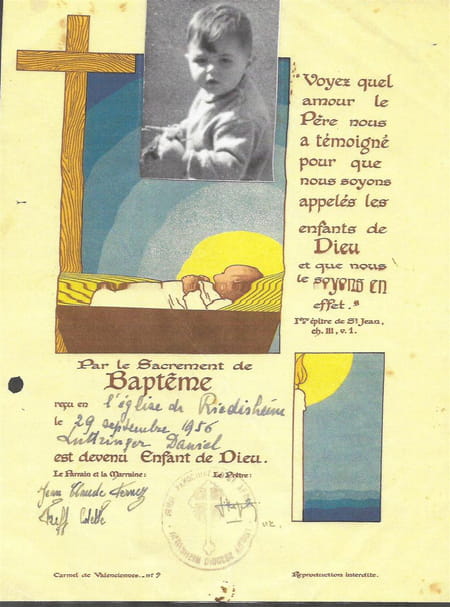 Voyez quel
amour le
Père nous
a témoigné
pour que
nous soyons
appelés les
enfants de
Dieu
et que nous
le soyons en
effet.
Iʳᵉ épître de Sᵗ Jean,
ch. III, v. 1.
Par le Sacrement de
Baptême
reçu en l'église de Riedisheim
le 29 septembre 1956
Luttringer Daniel
est devenu Enfant de Dieu.
Le Parrain et la Marraine:
Le Prêtre:
Jean Claude
Carmel de Valenciennes. nº 9
Reproduction interdite.